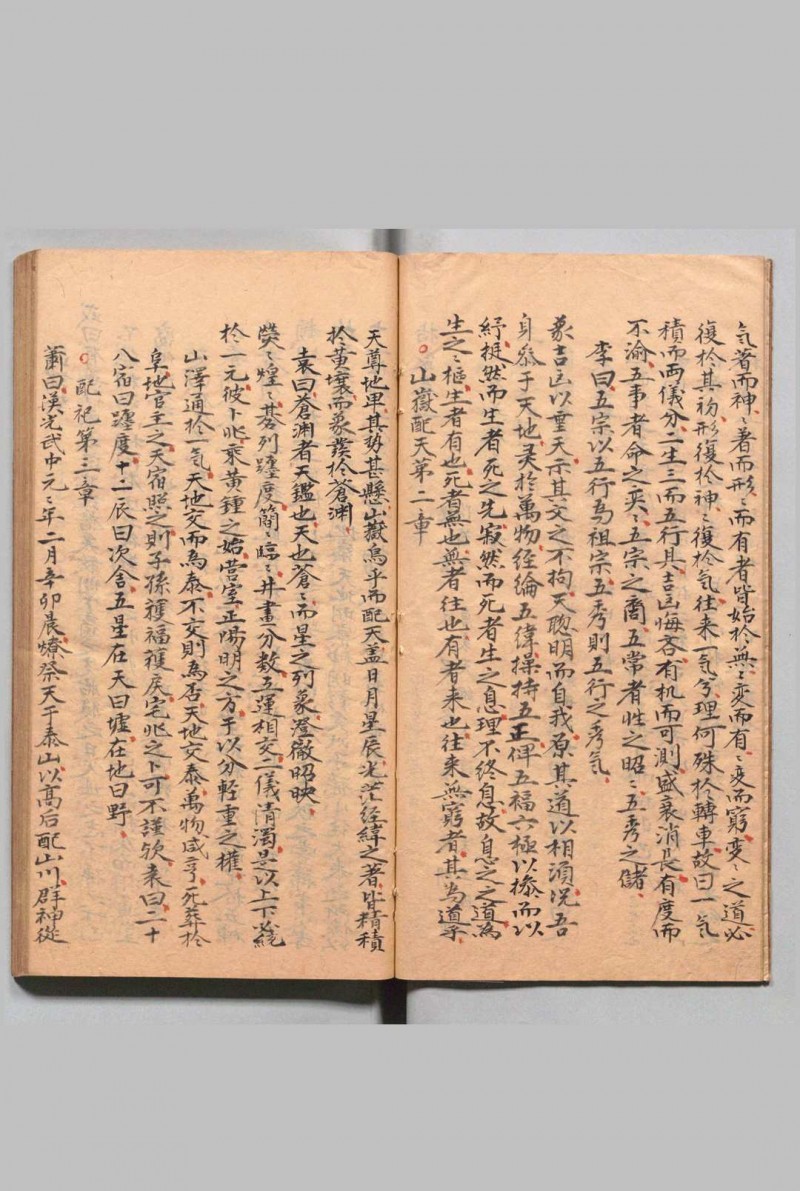 気著而神〻著而形〻而有者皆始於無〻変而有〻変而窮変〻之道必
復於其初形復於神〻復於気往来一気兮理何殊於轉車故曰一気
積而両儀分二生三而五行具吉凶悔吝有机而可測盛衰消長有度而
不渝五事者命之爽〻五宗之裔五常者性之昭〻五秀之儲
李曰五宗以五行為祖宗五秀則五行之秀気
象吉凶以垂天示其文之不拘天聰明而自我原其道以相須况吾
身叅于天地灵於萬物経綸五緯操持五正俾五福六極以㨆而以
紓挺然而生者死之先寂然而死者生之息理不終息故息之之道為
生之〻樞生者有也死者無也無者往也有者来也往来無窮者其為道乎
山嶽配天第二章
天尊地卑其勢甚懸山嶽烏乎而配天盖日月星辰光茫経緯之著皆精積
於黄壤而象發於蒼淵
袁曰蒼淵者天鑑也天也蒼〻而星之列象澄徹昭映
熒〻煌〻碁列躔度簡〻臨〻井畫分数五運相交二儀清濁是以上下統
於一元彼卜兆乘黄鍾之始营室正陽明之方于以分軽重之權
山澤通於一気天地交而為泰不交則為否天地交泰萬物咸亨死葬於
阜地官王之天宿照之則子孫獲福獲戻宅兆之卜可不謹欤袁曰二十
八宿曰躔度十二辰曰次舍五星在天曰墟在地曰野
配祀第三章
蕭曰漢光武中元〻年二月辛卯晨燎祭天于泰山以髙后配山川群神從